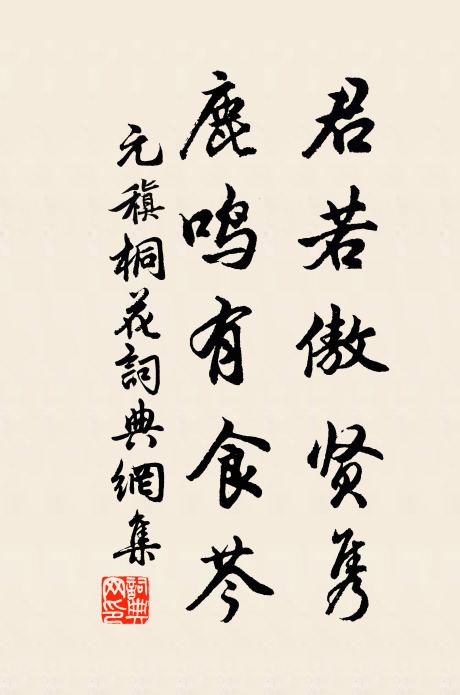 君若傲贤隽
鹿鸣有食芩
元稹桐花詞典網集
詞典
网印